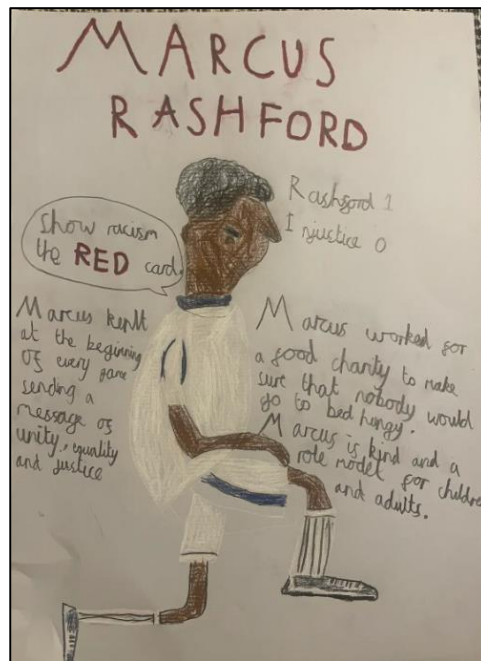 MARCUS
RASHFORD
Rashford 1
Injustice 0
Show racism
the RED card.
Marcus kenlt
at the beginning
of every game
sending a
message of
unity, equality
and justice
Marcus worked for
a good charity to make
sure that nobody would
go to bed hungy.
Marcus is kind and a
role model for children
and adults.